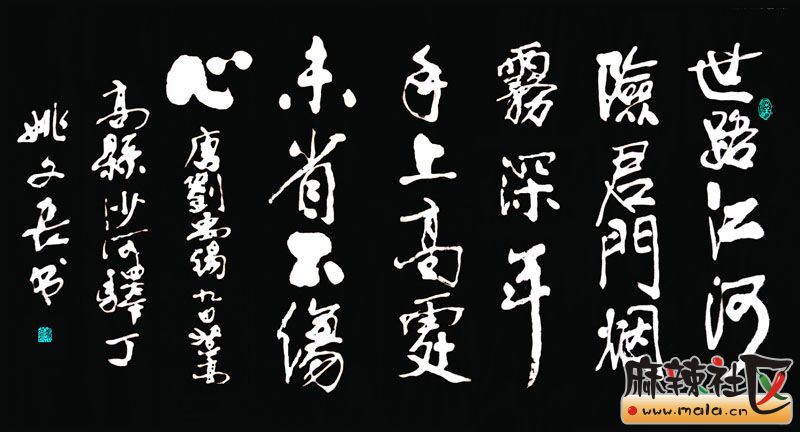 世路江河
險君門烟
霧深年
年上高處
未省不傷
心
唐劉禹錫九日登高
高縣沙河驛丁
姚文书
麻辣社区
www.mala.cn